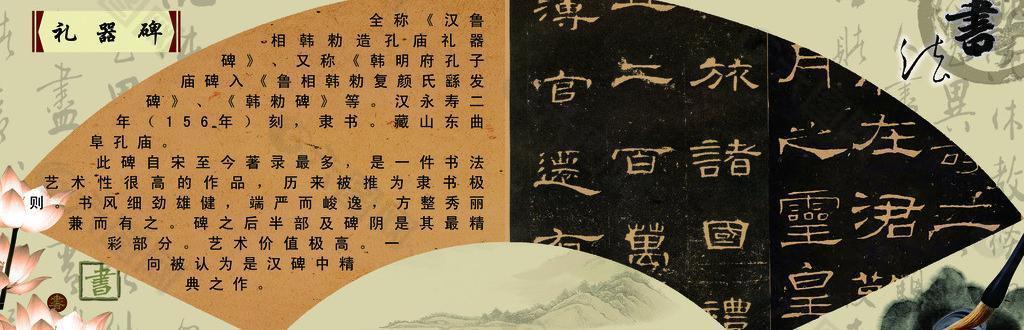 礼器碑
全称《汉鲁
相韩勅造孔庙礼器
碑》、又称《韩明府孔子
庙碑入《鲁相韩勅复颜氏繇发
碑》、《韩勅碑》等。汉永寿二
年(156年)刻，隶书。藏山东曲
阜孔庙。
此碑自宋至今著录最多，是一件书法
艺术性很高的作品，历来被推为隶书极
则。书风细劲雄健，端严而峻逸，方整秀丽
兼而有之。碑之后半部及碑阴是其最精
彩部分。艺术价值极高。一
向被认为是汉碑中精
典之作。
書法
月之靈皇
旅諸國禮
二百萬
薄官還有
書